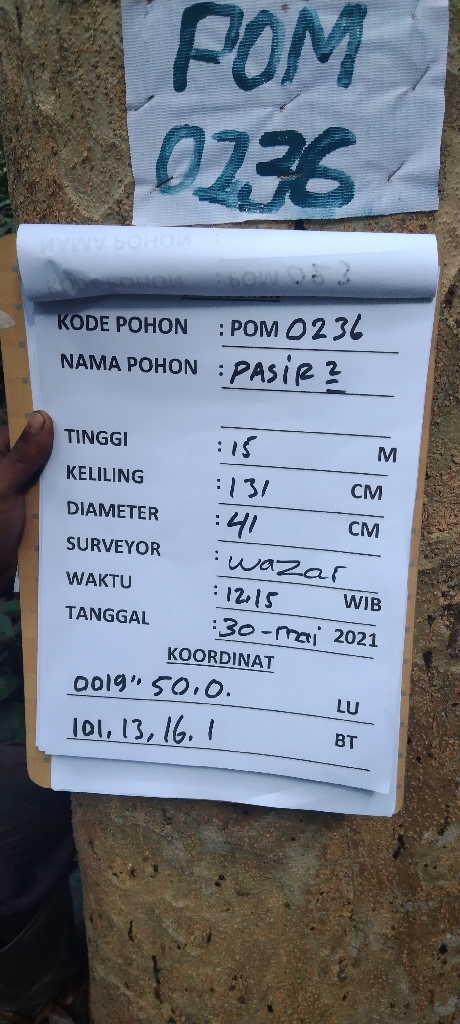 POM
0236
KODE POHON : POM 0236
NAMA POHON : PASIR 2
TINGGI : 15 M
KELILING : 131 CM
DIAMETER : 41 CM
SURVEYOR : wazar
WAKTU : 12.15 WIB
TANGGAL : 30-mai 2021
KOORDINAT
0019" 50.0. LU
101, 13, 16. 1 BT